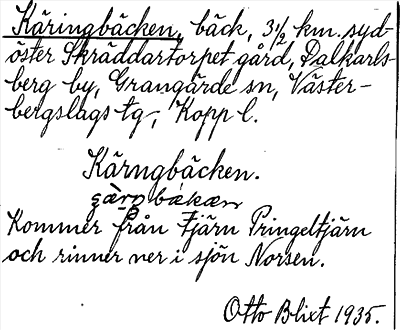 Käringbäcken, bäck, 3 1/2 km. syd-
öster Skräddartorpet gård, Dalkarls-
berg by, Grangärde sn, Väster-
bergslags tg, Kopp l.
Kärngbäcken.
Kommer från tjärn Pringeltjärn
och rinner ner i sjön Norsen.
Otto Blixt 1935.